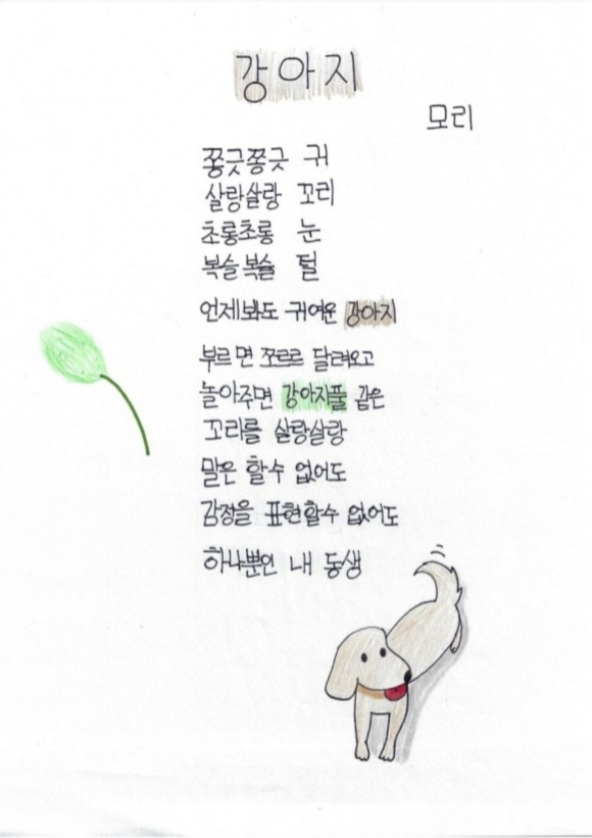 강아지
모리
쫑긋쫑긋 귀
살랑살랑 꼬리
초롱초롱 눈
복슬복슬 털
언제봐도 귀여운 강아지
부르면 쪼르르 달려오고
놀아주면 강아지풀 같은
꼬리를 살랑살랑
말은 할수 없어도
감정을 표현할수 없어도
하나뿐인 내 동생